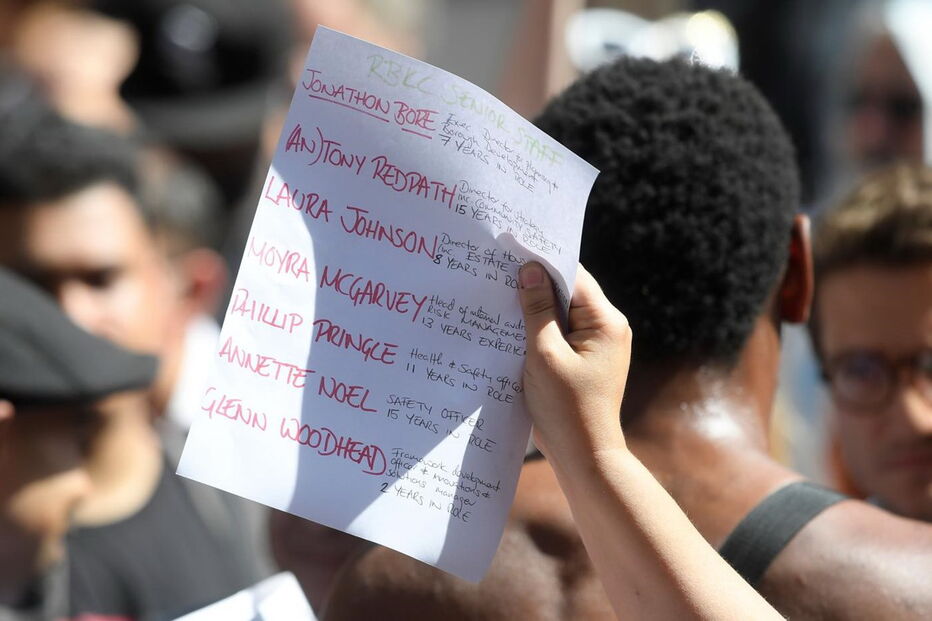 RBKC SENIOR STAFF
JONATHON BORE
Exec. Director for Housing
Borough Development
7 YEARS IN ROLE
AN)TONY REDPATH
Director for
inc. COMMUNITY SAFETY
15 YEARS IN ROLE
LAURA JOHNSON
Director of
inc ESTATE
8 YEARS IN ROLE
MOYRA MCGARVEY
Head of internal audit
RISK MANAGEMENT
13 YEARS EXPERIEN
PHILLIP PRINGLE
Health & Safety officer
11 YEARS IN ROLE
ANNETTE NOEL
SAFETY OFFICER
15 YEARS IN ROLE
GLENN WOODHEAD
Framework development
officer & innovations &
solutions manager
2 YEARS IN ROLE